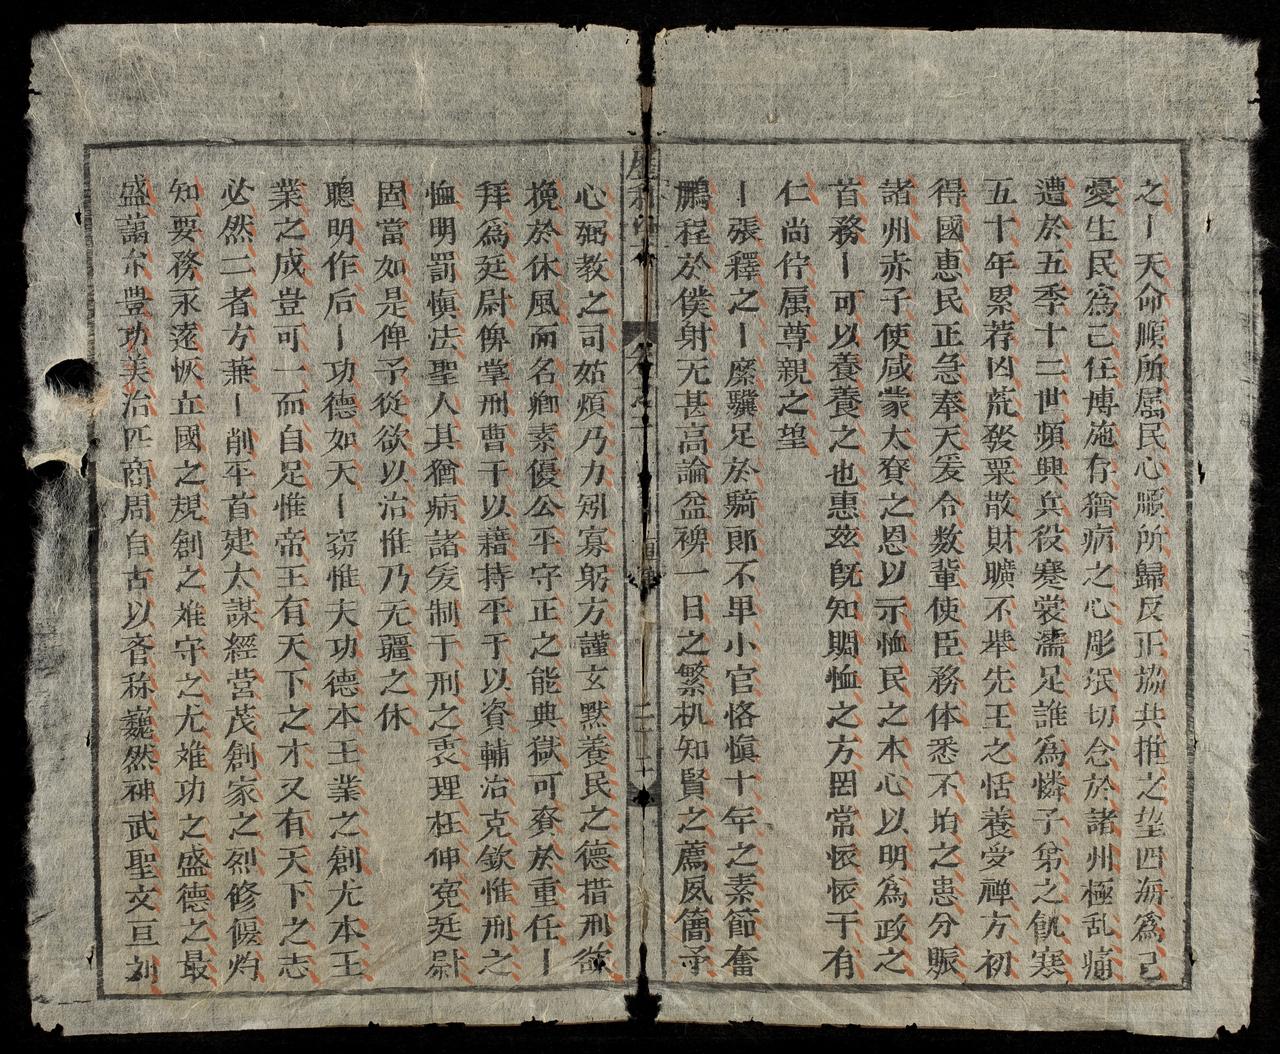 之丨天命順所屬民心順所歸反正協共推之望四海爲己
憂生民爲己任博施存猶病之心彫氓切念於諸州極乱痛
遭於五季十二世頻興兵役蹇裳濡足誰爲憐子弟之飢寒
五十年累荐凶荒發粟散財曠不举先王之恬養受禅方初
得國惠民正急奉天爰令数輩使臣務体悉不均之患分賑
諸州赤子使咸蒙太賚之恩以示恤民之本心以明為政之
首務丨可以養養之也惠兹旣知賙恤之方罔常懷懷于有
仁尚佇属尊親之望
丨張釋之丨縻驥足於騎郎不卑小官恪愼十年之素節奮
鵬程於僕射无甚高論益裨一日之繁机知賢之薦夙簡予
心弼教之司姑煩乃力矧寡躬方謹玄默養民之德措刑欲
挽於休風而名卿素優公平守正之能典獄可賚於重任丨
拜爲廷尉俾掌刑曹干以藉持平于以資輔治克欽惟刑之
恤明罰愼法聖人其猶病諸爰制于刑之衷理枉伸寃廷尉
固當如是俾予從欲以治惟乃无疆之休
聰明作后丨功德如天丨窃惟大功德本王業之創尤本王
業之成豈可一而自足惟帝王有天下之才又有天下之志
必然二者方兼丨削平首建太謀經营茂創家之烈修偃灼
知要務永遠恢立國之規創之难守之尤难功之盛德之最
盛藹尒豊功美治匹商周自古以来称巍然神武聖文亘